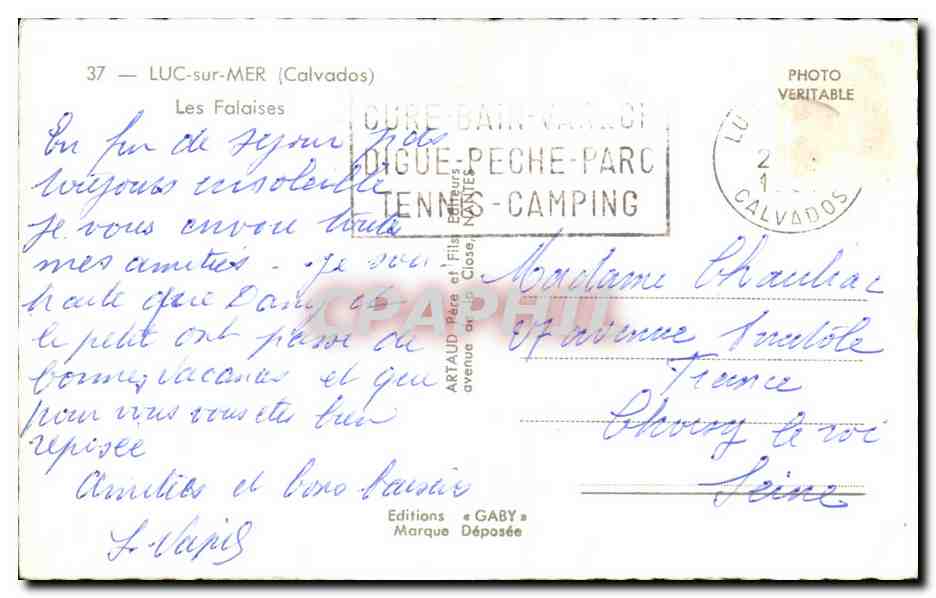 37 — LUC-sur-MER (Calvados)
Les Falaises
PHOTO
VERITABLE
CURE-BAIN-VARECH
DIGUE-PECHE-PARC
TENNIS-CAMPING
LU
2
1
CALVADOS
En fin de séjour
toujours ensoleillé
je vous envoie toute
mes amitiés. Je sou-
haite que Dany et
le petit ont passé de
bonnes vacances et que
pour vous vous etes bien
reposée
Amitiés et bons baisers
ARTAUD Père et Fils, Editeurs
avenue de la Close, NANTES
CPAPHIL
Madame Chauliac
avenue Anatole
France
Choisy le roi
Seine
Editions « GABY »
Marque Déposée